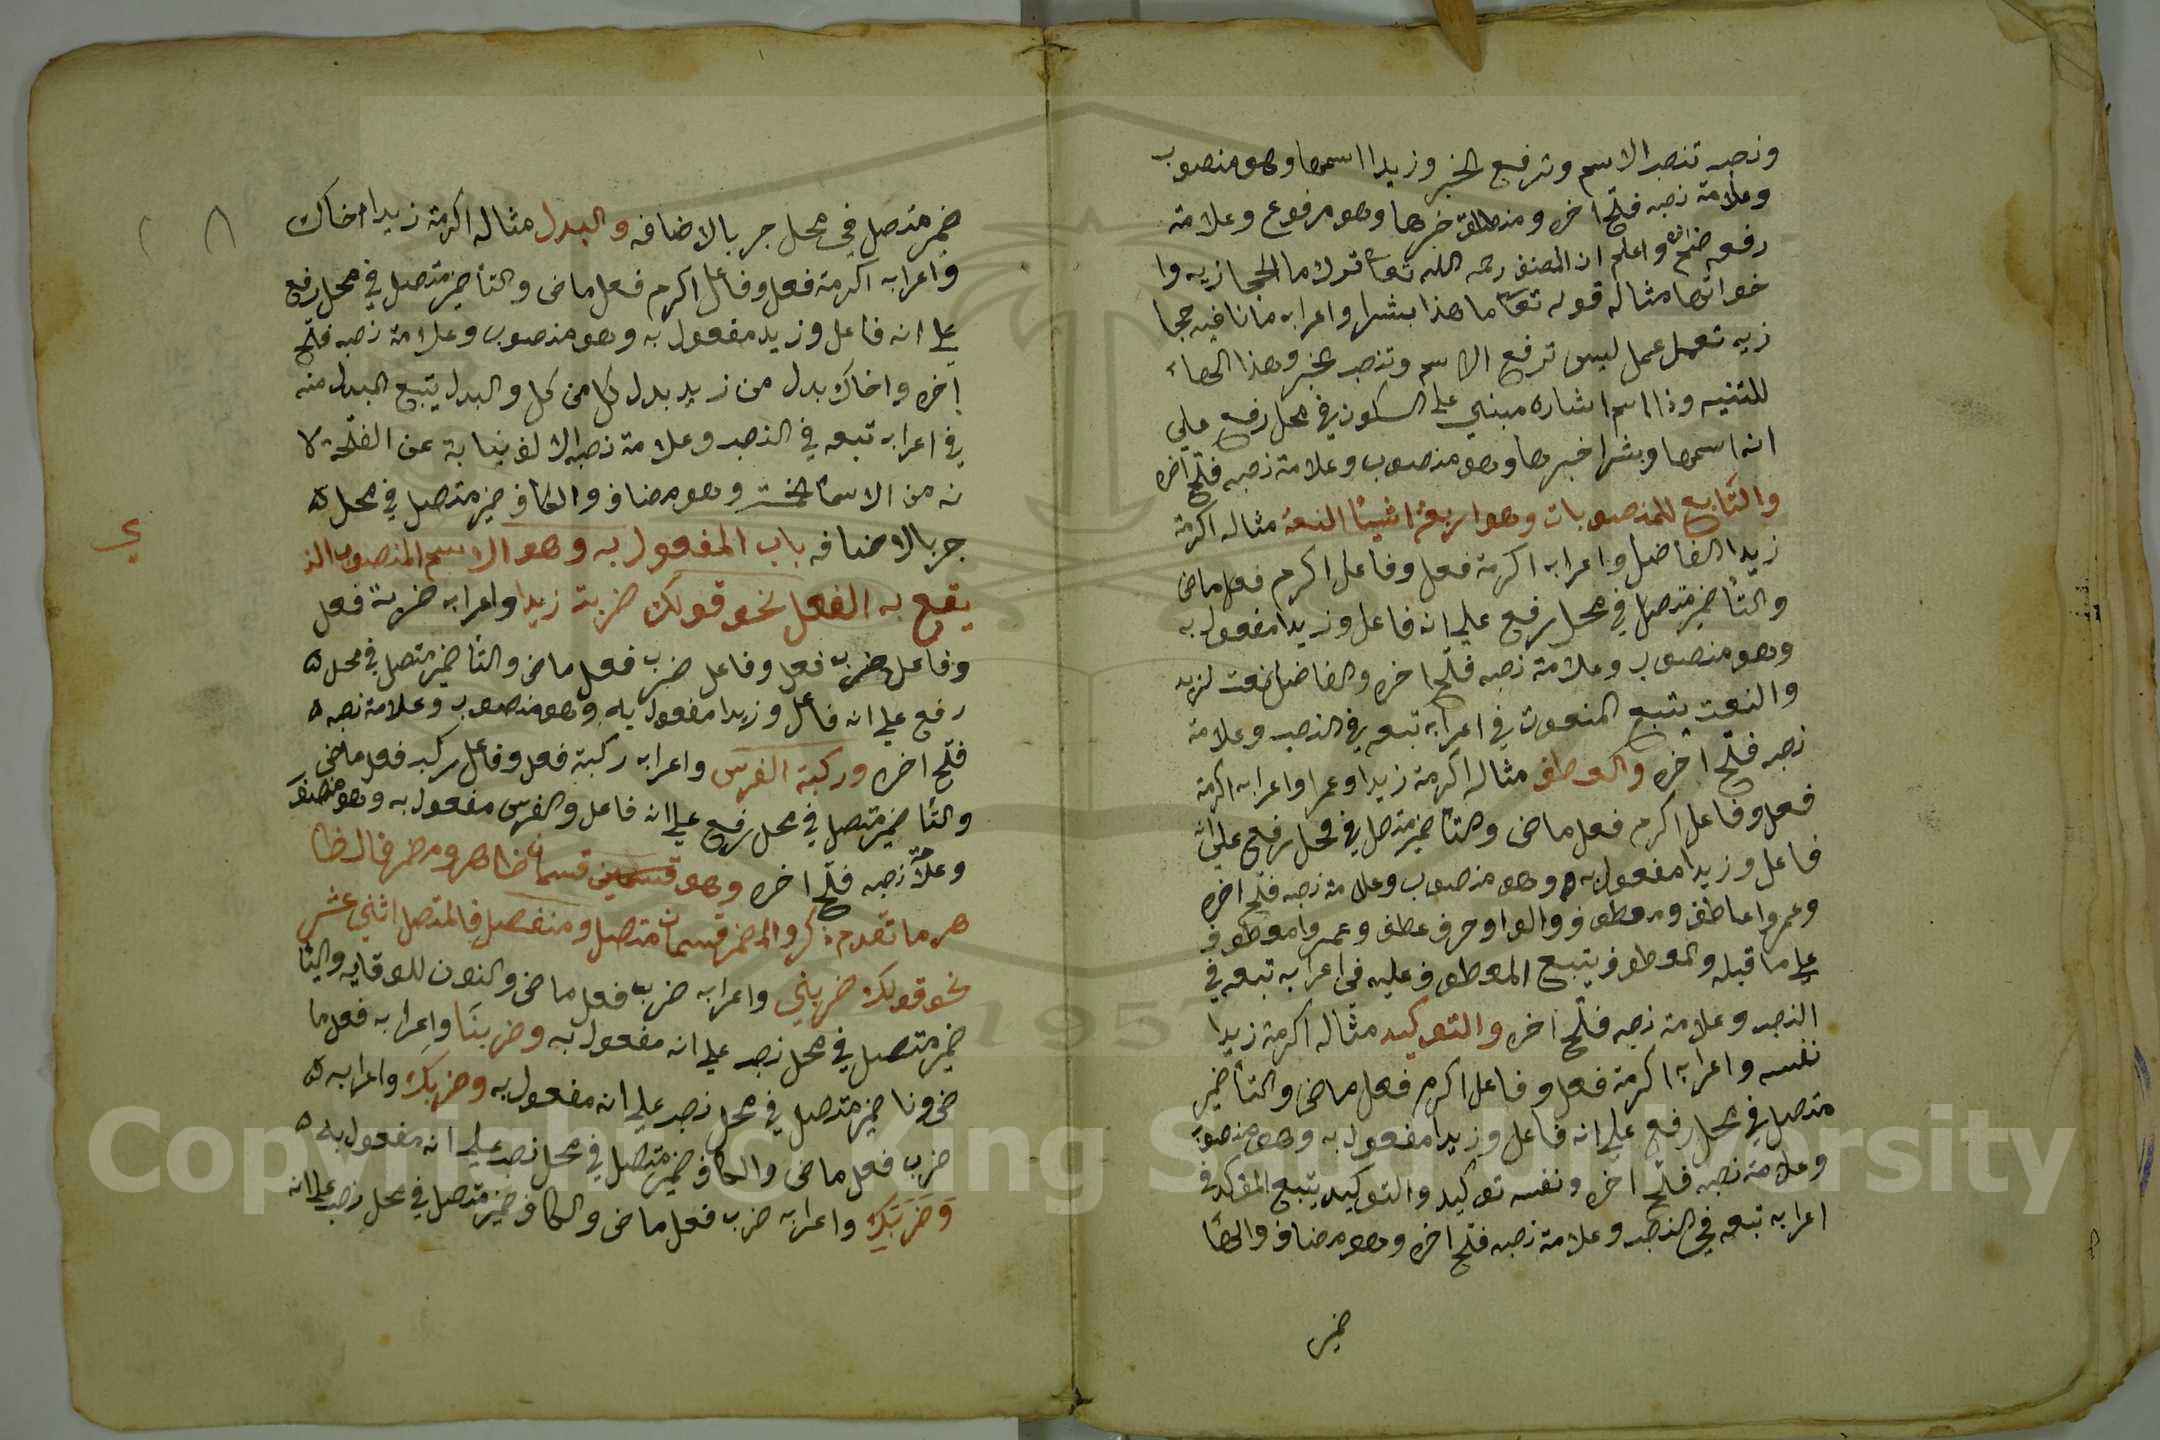 ونصب تنصب الاسم وترفع الخبر وزيدا اسمها وهو منصوب
وعلامة نصبه فتح اخره ومنطلق خبرها وهو مرفوع وعلامة
رفعه ضم اخره واعلم ان المصنف رحمه الله تعا ترك ما الحجازيه وا
خواتها مثاله قوله تعا ما هذا بشرا واعرابه ما نافيه حجا
زيه تعمل عمل ليس ترفع الاسم وتنصب الخبر وهذا الهاء
للتنبيه وذا اسم اشاره مبني على السكون في محل رفع علي
انه اسمها وبشرا خبرها وهو منصوب وعلامة نصبه فتح اخره
والتابع للمنصوبات وهو اربعة اشيا النعت مثاله اكرمت
زيدا الفاضل واعرابه اكرمت فعل وفاعل اكرم فعل ماض
والتا ضمير متصل في محل رفع علي انه فاعل وزيدا مفعول به
وهو منصوب وعلامة نصبه فتح اخره والفاضل نعت لزيد
والنعت يتبع المنعوت في اعرابه تبعه في النصب وعلامة
نصبه فتح اخره والعطف مثاله اكرمت زيدا وعمرا واعرابه اكرمت
فعل وفاعل اكرم فعل ماض والتا ضمير متصل في محل رفع علي انه
فاعل وزيدا مفعول به وهو منصوب وعلامة نصبه فتح اخره
وعمروا عاطف ومعطوف والواو حرف عطف وعمروا معطوف
علي ما قبله والمعطوف يتبع المعطوف عليه في اعرابه تبعه في
النصب وعلامة نصبه فتح اخره والتوكيد مثاله اكرمت زيدا
نفسه واعرابه اكرمت فعل وفاعل اكرم فعل ماض والتا ضمير
متصل في محل رفع علي انه فاعل وزيدا مفعول به وهو منصوب
وعلامة نصبه فتح اخره ونفسه توكيد والتوكيد يتبع المؤكد في
اعرابه تبعه في النصب وعلامة نصبه فتح اخره وهو مضاف والها
ضمير
٨
ضمير متصل في محل جر بالاضافه والبدل مثاله اكرمت زيدا اخاك
واعرابه اكرمت فعل وفاعل اكرم فعل ماض والتا ضمير متصل في محل رفع
علي انه فاعل وزيد مفعول به وهو منصوب وعلامة نصبه فتح
اخره واخاك بدل من زيد بدل كل من كل والبدل يتبع المبدل منه
في اعرابه تبعه في النصب وعلامة نصبه الالف نيابة عن الفتحة لا
نه من الاسما الخمسة وهو مضاف والكاف ضمير متصل في محل
جر بالاضافه باب المفعول به وهو الاسم المنصوب الذ
يقع به الفعل نحو قولك ضربت زيدا واعرابه ضربت فعل
وفاعل ضرب فعل وفاعل ضرب فعل ماض والتا ضمير متصل في محل
رفع علي انه فاعل وزيدا مفعول به وهو منصوب وعلامة نصبه
فتح اخره وركبت الفرس واعرابه ركبت فعل وفاعل ركب فعل ماض
والتا ضمير متصل في محل رفع علي انه فاعل والفرس مفعول به وهو منصوب
وعلامة نصبه فتح اخره وهو قسمين قسمان ظاهر ومضمر فالظا
هر ما تقدم ذكره والمضمر قسمان متصل ومنفصل فالمتصل اثني عشر
نحو قولك ضربني واعرابه ضرب فعل ماض والنون للوقايه واليا
ضمير متصل في محل نصب علي انه مفعول به وضربنا واعرابه فعل ما
ض ونا ضمير متصل في محل نصب علي انه مفعول به وضربك واعرابه
ضرب فعل ماض والكاف ضمير متصل في محل نصب علي انه مفعول به
وضربك واعرابه ضرب فعل ماض والكاف ضمير متصل في محل نصب علي انه
Copyright © King Saud University
1957